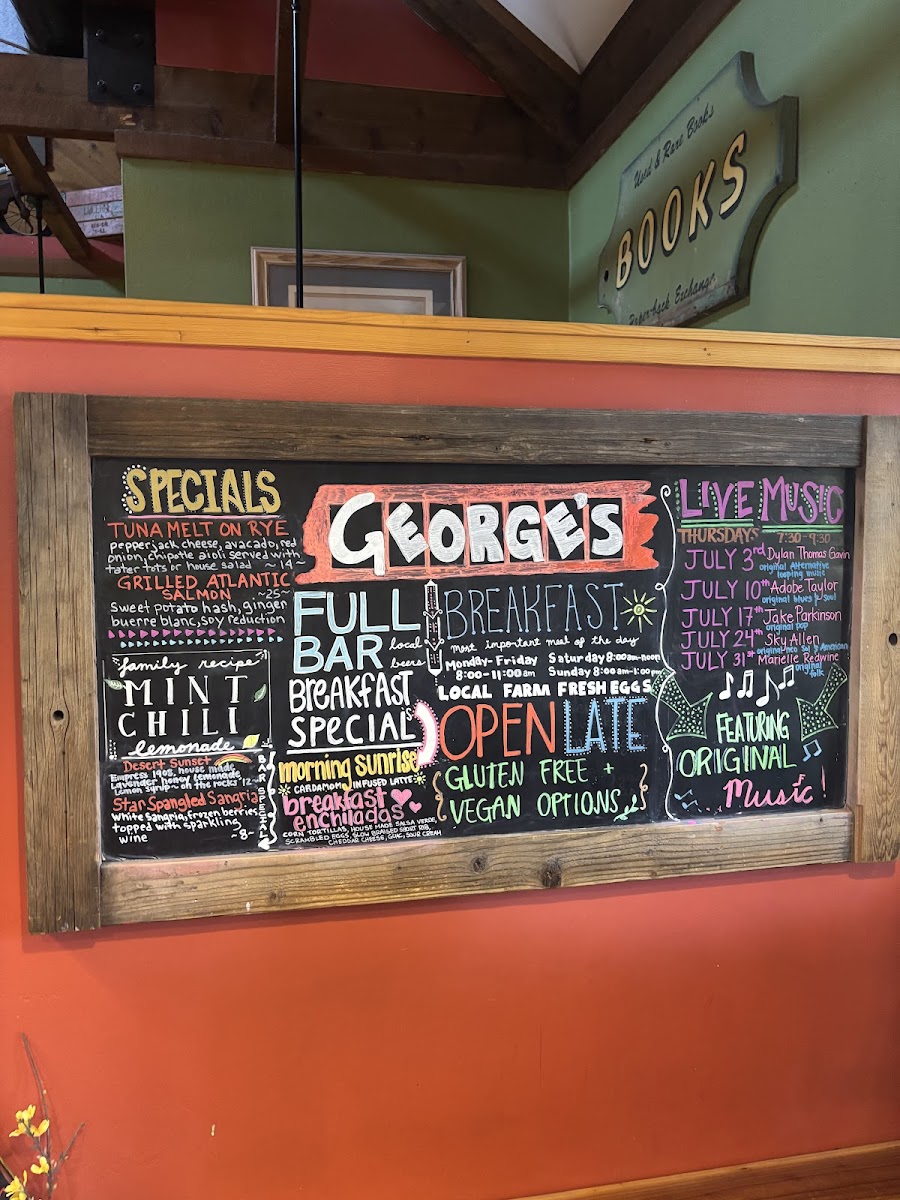 Used & Rare Books
BOOKS
Paper-back Exchange
SPECIALS
TUNA MELT ON RYE
pepperjack cheese, avacado, red
onion, chipotle aioli served with
tater tots or house salad ~14~
GRILLED ATLANTIC
SALMON ~25~
Sweet potato hash, ginger
buerre blanc, soy reduction
"family recipe"
MINT
CHILI
lemonade
Desert Sunset
Empress 1908, house made
Lavender honey lemonade,
Lemon syrup~ on the rocks 12~
Star Spangled Sangria
White Sangria, frozen berries
topped with sparkling
wine ~8~
BAR SPECIALS
GEORGE'S
FULL
BAR
local
beers
BREAKFAST
SPECIALS
morning sunrise
CARDAMOM INFUSED LATTE
breakfast
enchiladas
CORN TORTILLAS, HOUSE MADE SALSA VERDE,
SCRAMBLED EGGS, SLOW BRAISED SHORT RIB,
CHEDDAR CHEESE, GUAC, SOUR CREAM
BREAKFAST
most important meal of the day
Monday-Friday Saturday 8:00am-noon
8:00-11:00am Sunday 8:00am-1:00pm
LOCAL FARM FRESH EGGS
OPEN LATE
GLUTEN FREE +
VEGAN OPTIONS
LIVE MUSIC
THURSDAYS 7:30-9:30
JULY 3rd Dylan Thomas Gavin
original Alternative
looping music
JULY 10th Adobe Taylor
original blues & soul
JULY 17th Jake Parkinson
original pop
JULY 24th Sky Allen
JULY 31st Marielle Redwine
original
folk
FEATURING
ORIGINAL
Music!